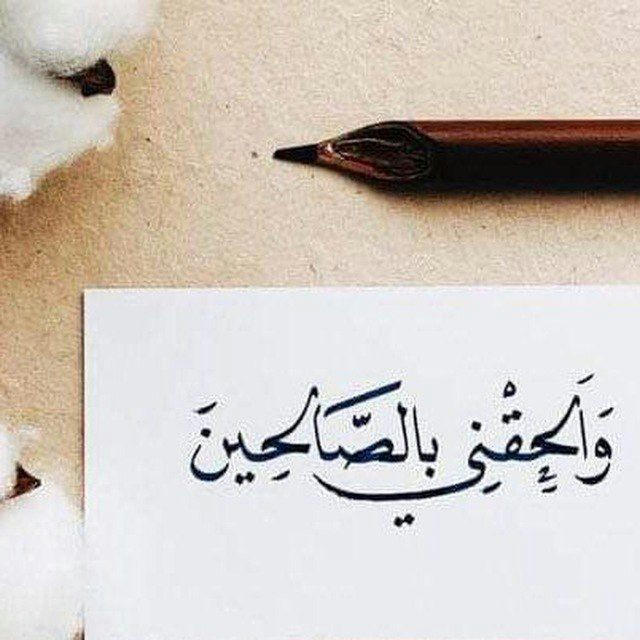 وَأَلحِقْنِي بالصَّالحِينَ